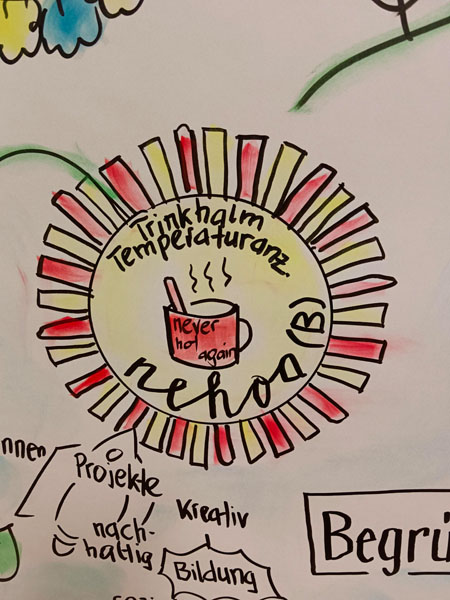 Trinkhalm
Temperaturanz.
never
hot
again
nehoa (B)
nnen
Projekte
nach-
haltig
Kreativ
Bildung
Begrü